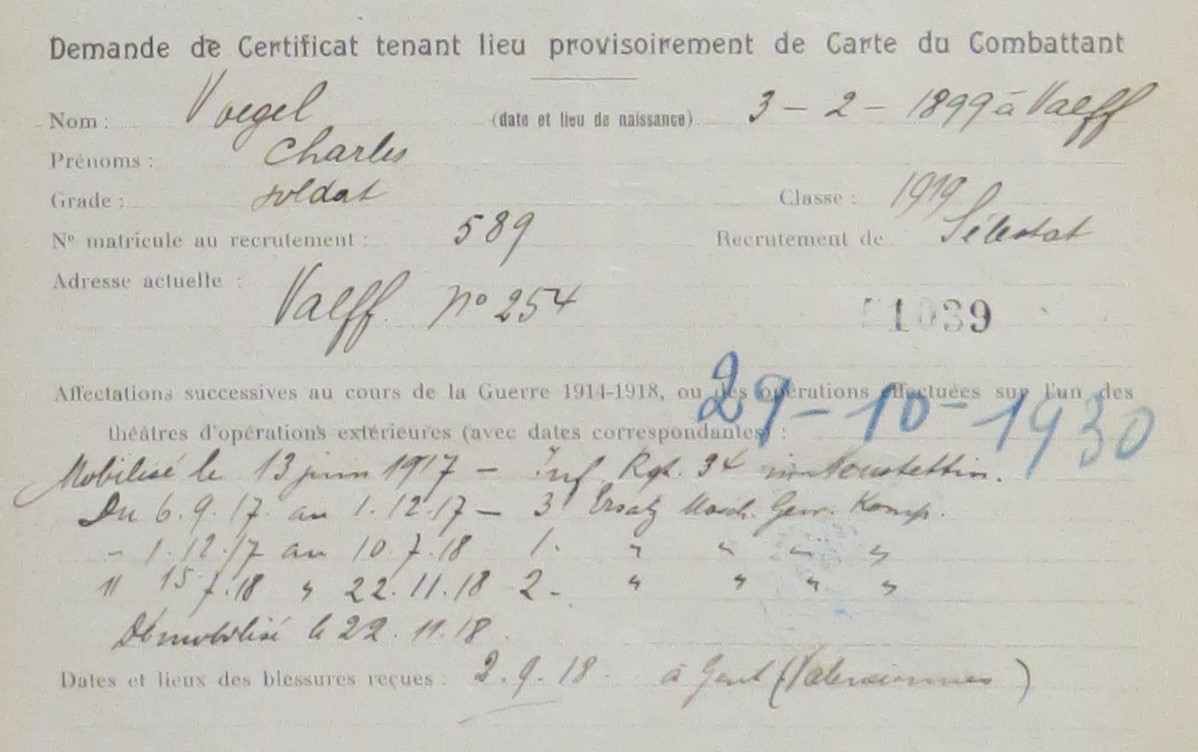 Demande de Certificat tenant lieu provisoirement de Carte du Combattant
Nom : Voegel (date et lieu de naissance) 3 - 2 - 1899 à Valff
Prénoms : Charles
Grade : soldat Classe : 1919
Nº matricule au recrutement : 589 Recrutement de Sélestat
Adresse actuelle : Valff nº 254
1039
Affectations successives au cours de la Guerre 1914-1918, ou des opérations effectuées sur l'un des
théâtres d'opérations extérieures (avec dates correspondantes) :
29-10-1930
Mobilisé le 13 juin 1917 - Inf. Rgt. 34 in Neustettin.
Du 6.9.17. au 1.12.17 - 3 Ersatz Masch. Gew. Komp.
- 1.12.17 au 10.7.18 1. " " " "
" 15.7.18 " 22.11.18 2. " " " "
Démobilisé le 22.11.18
Dates et lieux des blessures reçues : 2.9.18. à Gent (Valenciennes)